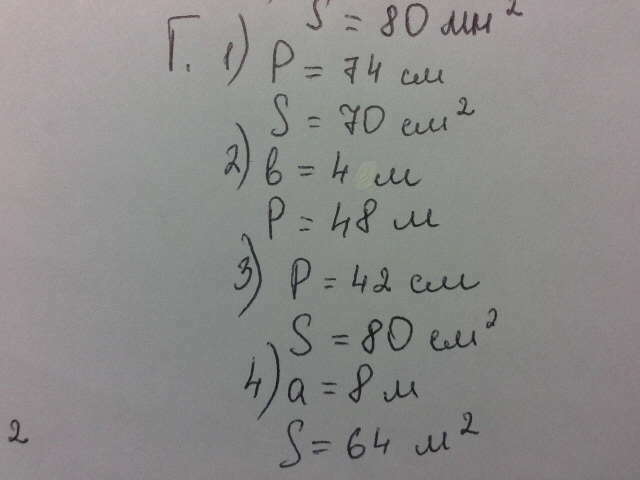 S = 80 мм²
Г. 1) P = 74 см
S = 70 см²
2) в = 4 м
P = 48 м
3) P = 42 см
S = 80 см²
4) а = 8 м
S = 64 м²
2